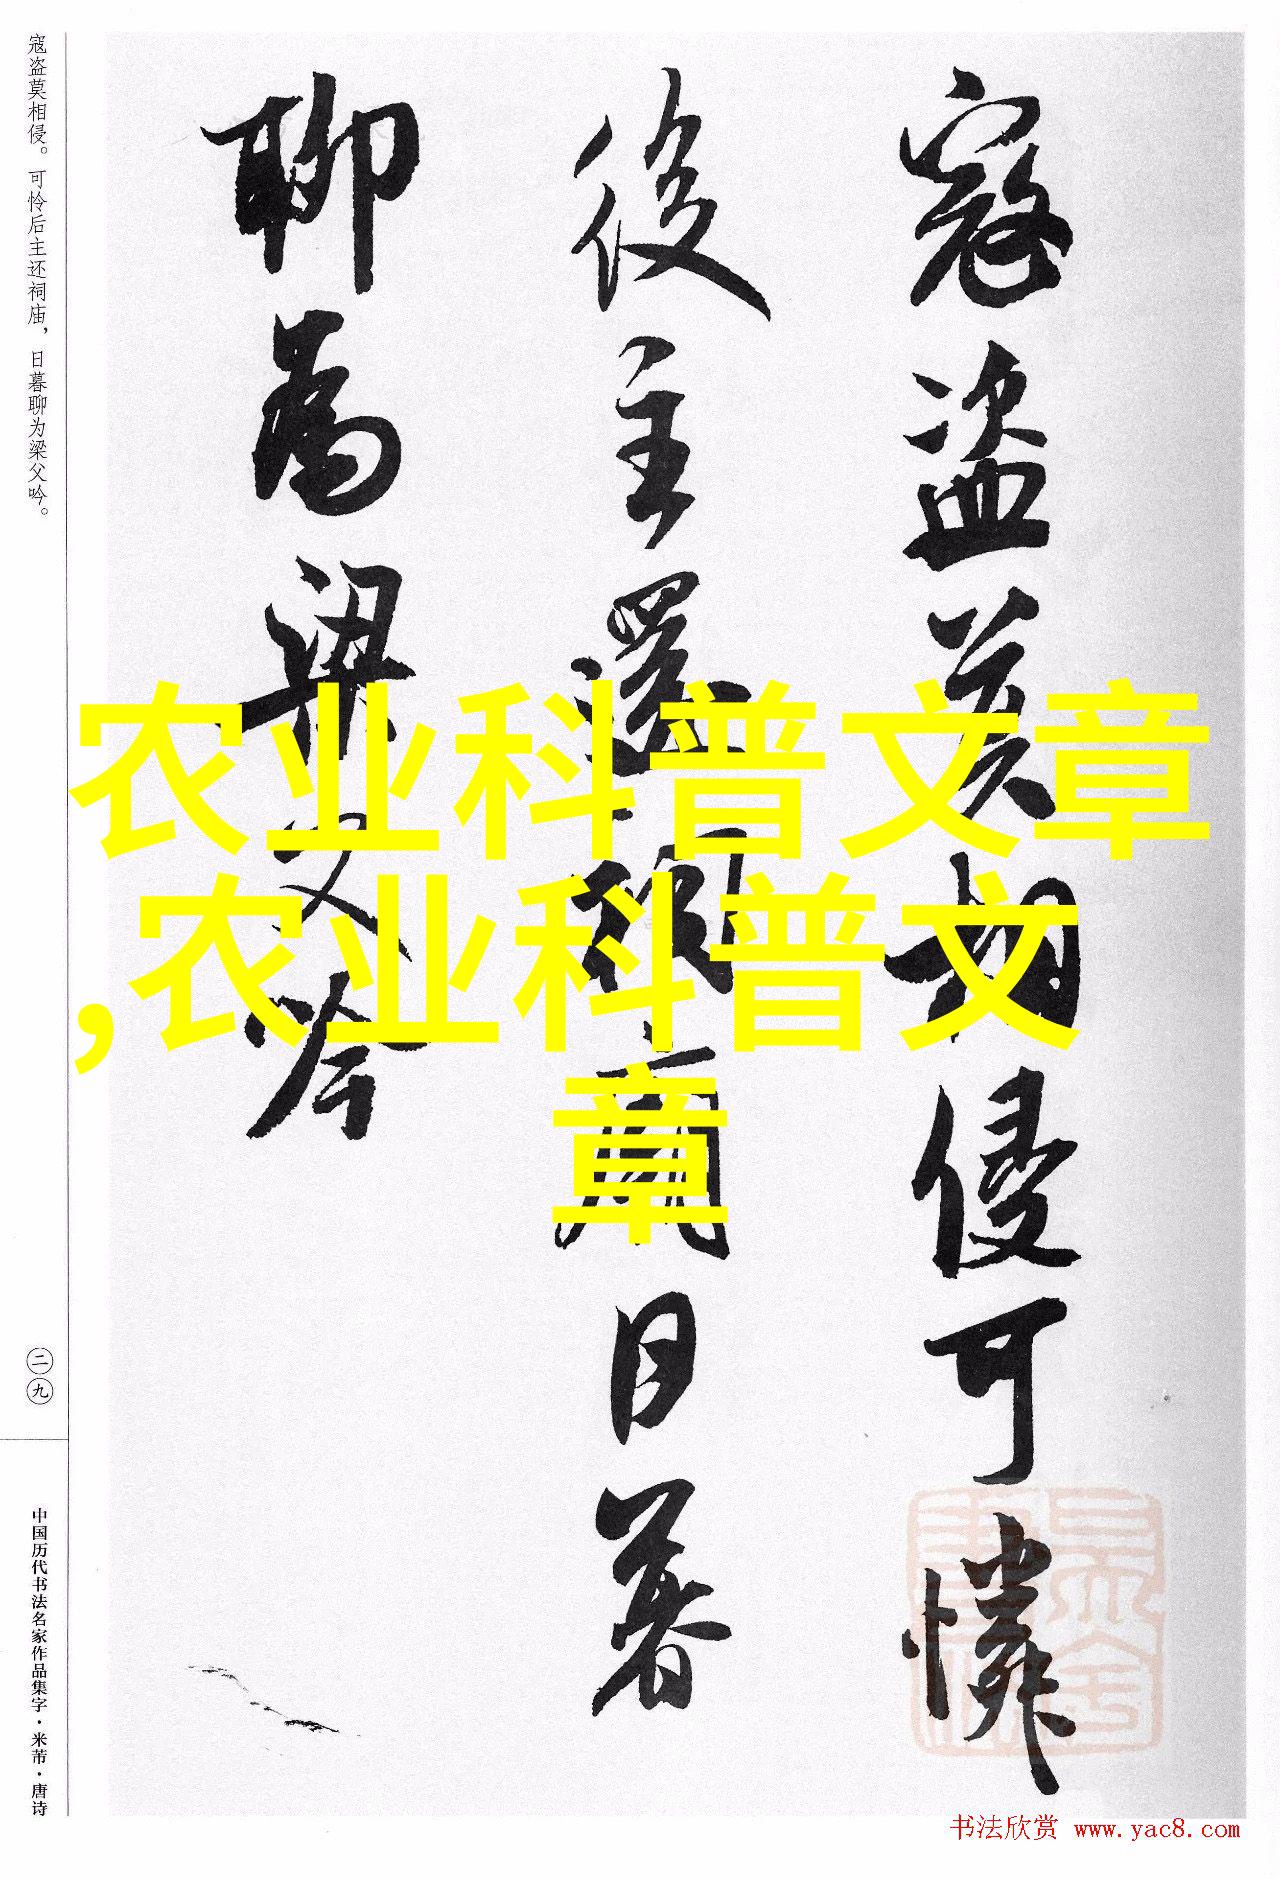 寇盗莫相侵可憐
後主還祠廟日暮
聊為梁父吟
寇盗莫相侵。可怜后主还祠庙，日暮聊为梁父吟。
二九
中国历代书法名家作品集字·米芾·唐诗
农业科普文章
,农业科普文
章
书法欣赏 www.yac8.com